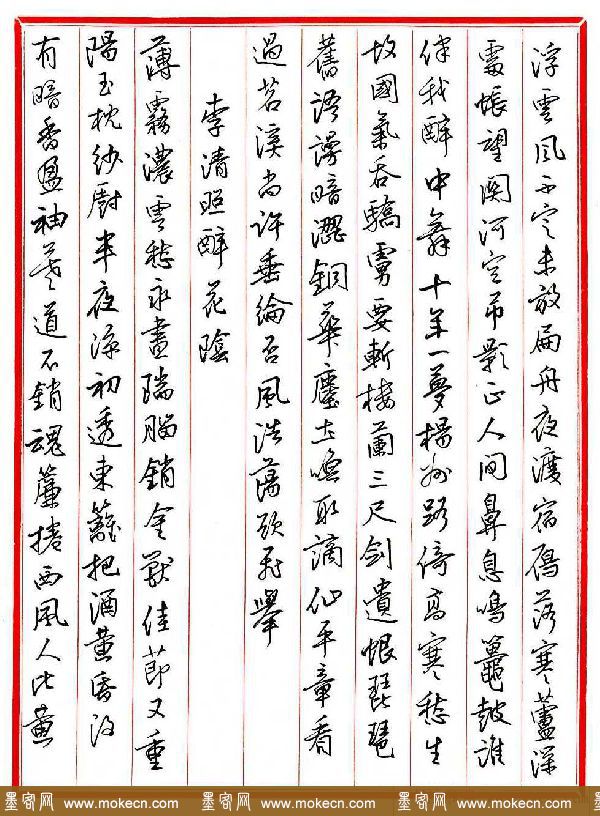 浮雲風不定未放扁舟夜渡宿鴈落寒蘆深
處悵望關河空弔影正人間鼻息鳴鼉鼓誰
伴我醉中舞十年一夢楊州路倚高寒愁生
故國氣吞驕虜要斬樓蘭三尺劍遺恨琵琶
舊語謾暗澀銅華塵土喚取謫仙平章看
過苕溪尚許垂綸否風浩蕩欲飛舉
李清照醉花陰
薄霧濃雲愁永晝瑞腦銷金獸佳節又重
陽玉枕紗厨半夜涼初透東籬把酒黃昏後
有暗香盈袖莫道不銷魂簾捲西風人比黃
墨客网 www.mokecn.com 墨客网 www.mokecn.com 墨客网 www.mokecn.com